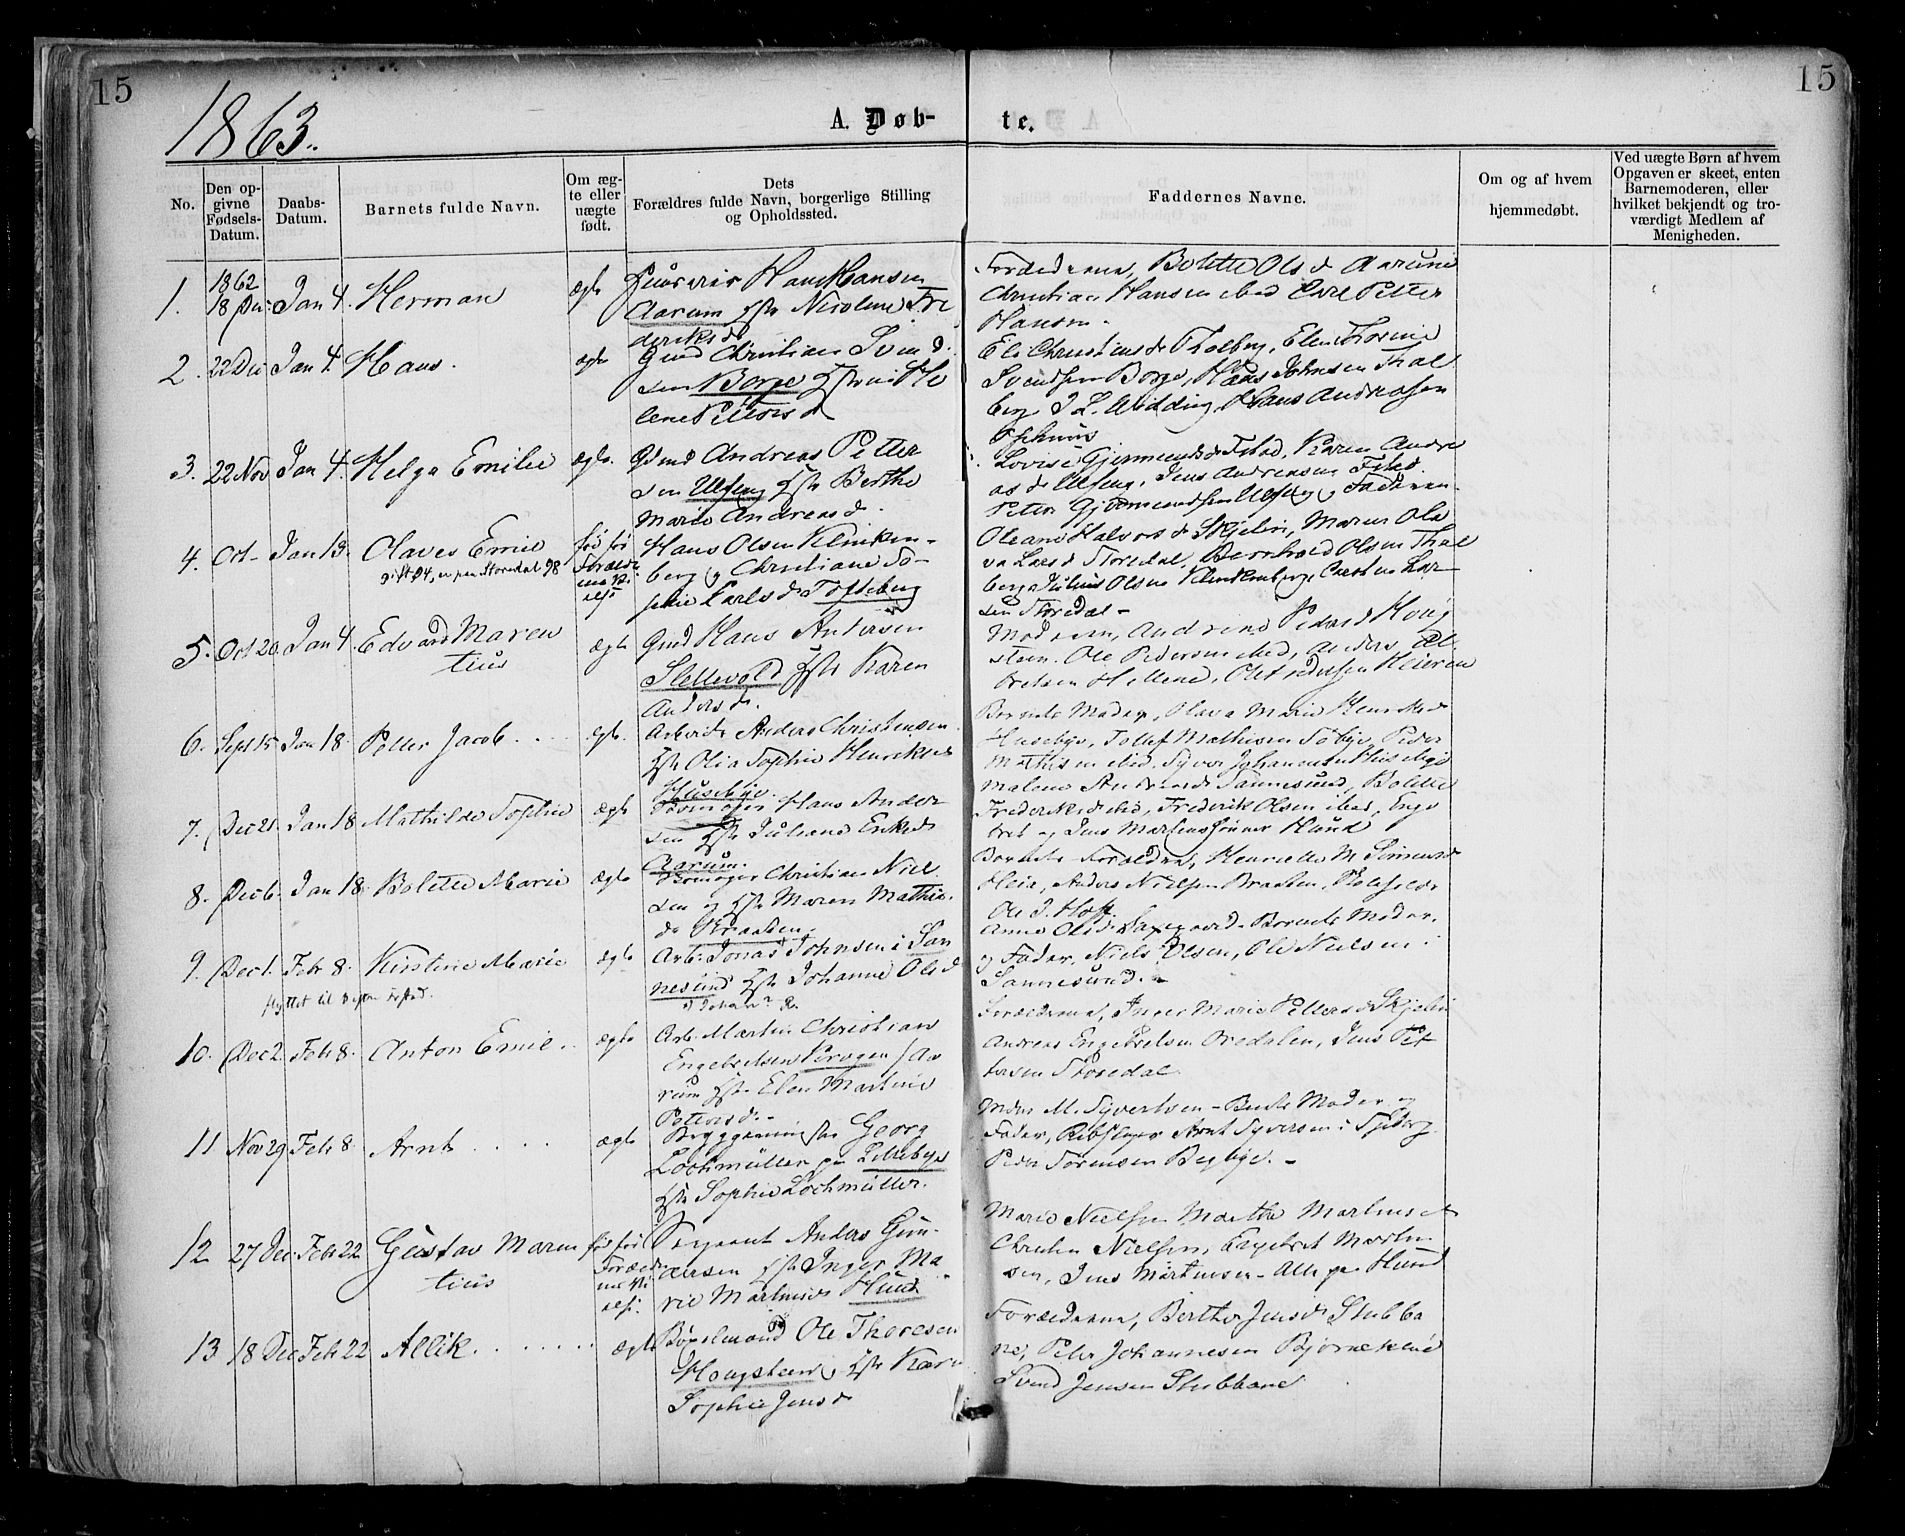 15
15
1863.
A. Døb-
te.
No.
Den op-
givne
Fødsels-
Datum.
Daabs-
Datum.
Barnets fulde Navn.
Om æg-
te eller
uægte
født.
Dets
Forældres fulde Navn, borgerlige Stilling
og Opholdssted.
Faddernes Navne.
Om og af hvem
hjemmedøbt.
Ved uægte Børn af hvem
Opgaven er skeet, enten
Barnemoderen, eller
hvilket bekjendt og tro-
værdigt Medlem af
Menigheden.
1862
1. 18 Dec Jan 4. Herman ægte
Hans Hansen
Aarum Hst Nicoline Fre
deriksd
Forældrene, Bolette Olsd Aarum
Christian Hansen ibid Carl Petter
Hansen.
2. 22 Dec Jan 4. Hans. ægte
Gmd Christian Svend
sen Borge Hstru He
lene Pettersd
Christiansd Thalberg, Elen Thorine
Svendsen Borge, Hans Johnsen Thal
berg J. L. Widding, Hans Andreasen
3. 22 Nov Jan 4. Helga Emilie ægte.
Gmd Andreas Petter
sen Ulfeng Hst Berthe
Marie Andreasd.
Lovise Gjermundsd Istad, Karen Andre
asd Ulfeng, Jens Andreasen
Petter Gjermundsen Ulfeng, Faderen
4. Oct Jan 13. Olaves Emil
gift 94, er paa Storedal 98
før for
Foræld
nes Vi
else
Hans Olsen Klinken-
berg og Christiane So-
phie Carlsd Tofteberg
Oleane Halvorsd Skjelin, Maren Ola
va Larsd Storedal, Bernhard Olsen Thal
berg Julius Olsen Klinkenberg, Carsten Lar
sen Storedal -
5. Oct 20 Jan 4. Edvard Maren
tius
ægte
Gmd Hans Andersen
Slettevold Hst Karen
Andersd.
Moderen, Andrine Pedersd Houg
steen. Ole Pedersen ibid, Anders
Hellene, Ole Pedersen
6. Sept 15 Jan 18. Petter Jacob ægte.
Arbeider Anders Christensen
Hst Olia Sophie Henriksd
Husebye.
Barnets Moder, Olava Marie Henriksd
Husebye, Tollef Mathisen Peder
Mathisen ibid. Syver Johannesen Husebye
7. Dec 21. Jan 18. Mathilde Sophie ægte
Hans Ander
sen Hst Juliane Eriksd
Aarum.
Malene Andreasd Sannesund, Bolette
Frederiksd ibid, Frederik Olsen ibid, Enge
bret og Jens Martinssønner Hund
8. Dec 6. Jan 18. Bolette Marie ægte
Christian Niel
sen og Hst Maren Mathia
Braaden.
Barnets Forældre, Henriette M. Simensd
Heia, Anders Nielsen Braaten,
Ole J. Hoff
9. Dec 1. Feb 8. Kirstine Marie ægte
flyttet til
Arb. Jonas Johnsen i San
nesund Hst Johanne Olsd
Anne Olsd Barnets Moder,
og Fader, Niels Olsen, Ole Nielsen i
Sannesund.
10. Dec 2. Feb 8. Anton Emil ægte
Arb. Martin Christian
Engebretsen
rum Hst Elen Martine
Petersd.
Forældrene, Inger Marie Pettersd Skjelin
Andreas Engebretsen Oredalen, Jens Pet
tersen Storedal.
11 Nov 29 Feb 8. Arnt ægte
Georg
Lochmüller paa Lillebye
Hst Sophie Lochmüller.
M. Syvertsen - Barnets Moder og
Fader, Arnt Syversen i
Peder Sørensen Begbye. -
12 27 Dec Feb 22 Gustav Maren
tius
før for
Foræld
nes Vi
else.
Sergeant Anders Gun-
dersen Hst Inger Ma
rie Martinsd Hund
Marie Nielsen Marthe Martinsen
Christen Nielsen, Engebret Martin
sen, Jens Martinsen - Alle paa Hund
13 18 Dec Feb 22 Allik ægte
Ole Thoresen
Hougsteen, Hst Karen
Sophie Jensd
Forældrene, Berthe Jensd Stubba
ne, Peter Johannesen Bjørneklev
Svend Jensen Stubbane